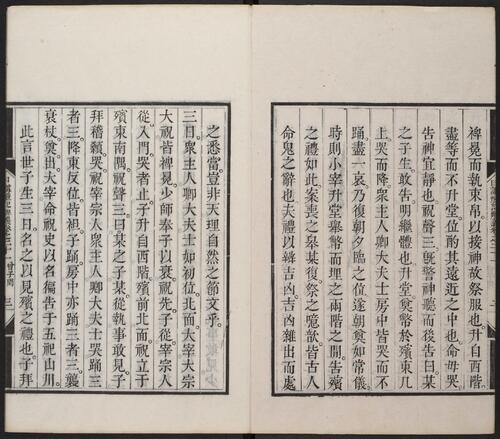 裨冕而執束帛以接神故祭服也升自西階
盡等而不升堂位酌其遠近之中也命毋哭
告神宜靜也祝聲三旣警神聽而後告曰某
之子生敢告明繼體也升堂奠幣於殯東几
上哭而降衆主人卿大夫士房中皆哭而不
踊盡一哀乃復朝夕臨之位遂朝奠如常儀
時則小宰升堂舉幣而埋之兩階之間告殯
之禮如此案喪之皋某復祭之噫歆皆古人
命鬼之辭也夫禮以緣吉凶吉凶雜出而處
之悉當豈非天理自然之節文乎
三日衆主人卿大夫士如初位北面大宰大宗
大祝皆裨冕少師奉子以衰祝先子從宰宗人
從入門哭者止子升自西階殯前北面祝立于
殯東南隅祝聲三曰某之子某從執事敢見子
拜稽顙哭祝宰宗人衆主人卿大夫士哭踊三
者三降東反位皆袒子踊房中亦踊三者三襲
衰杖奠出大宰命祝史以名徧告于五祀山川
此言世子生三日名之以見殯之禮也子拜